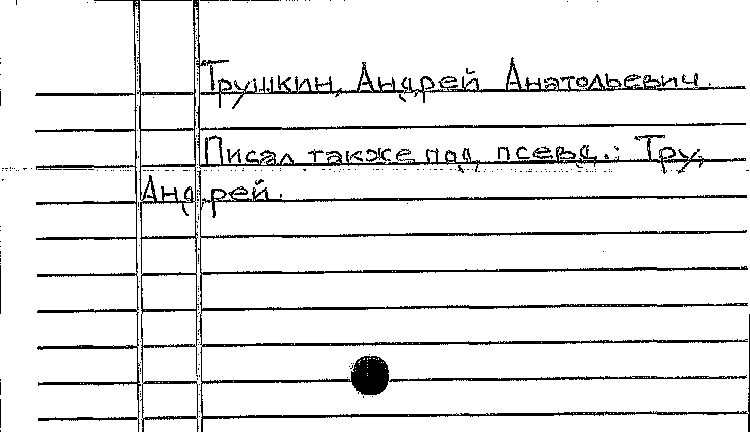 Трушкин, Андрей Анатольевич.
Писал также под псевд.: Тру,
Андрей.